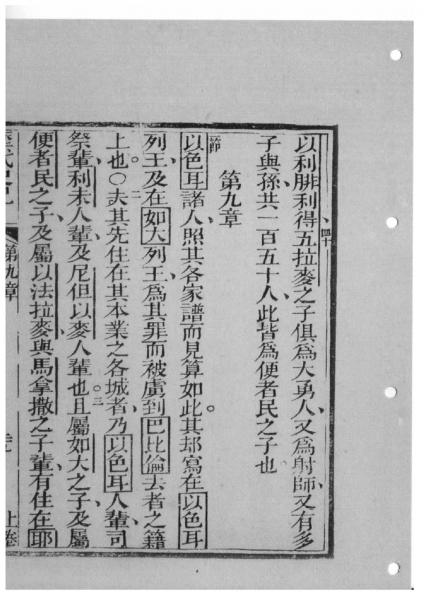 以利腓利得五拉麥之子俱爲大勇人又爲射師又有多
四十
子與孫共一百五十人此皆爲便者民之子也
第九章
一節
以色耳諸人照其各家譜而見算如此其却寫在以色耳
列王及在如大列王爲其罪而被虜到巴比倫去者之籍
上也○二夫其先住在其本業之各城者乃以色耳人輩司
祭輩利未人輩及尼但以麥人輩也三且屬如大之子及屬
便者民之子及屬以法拉麥與馬拿撒之子輩有住在耶
第九章
上卷